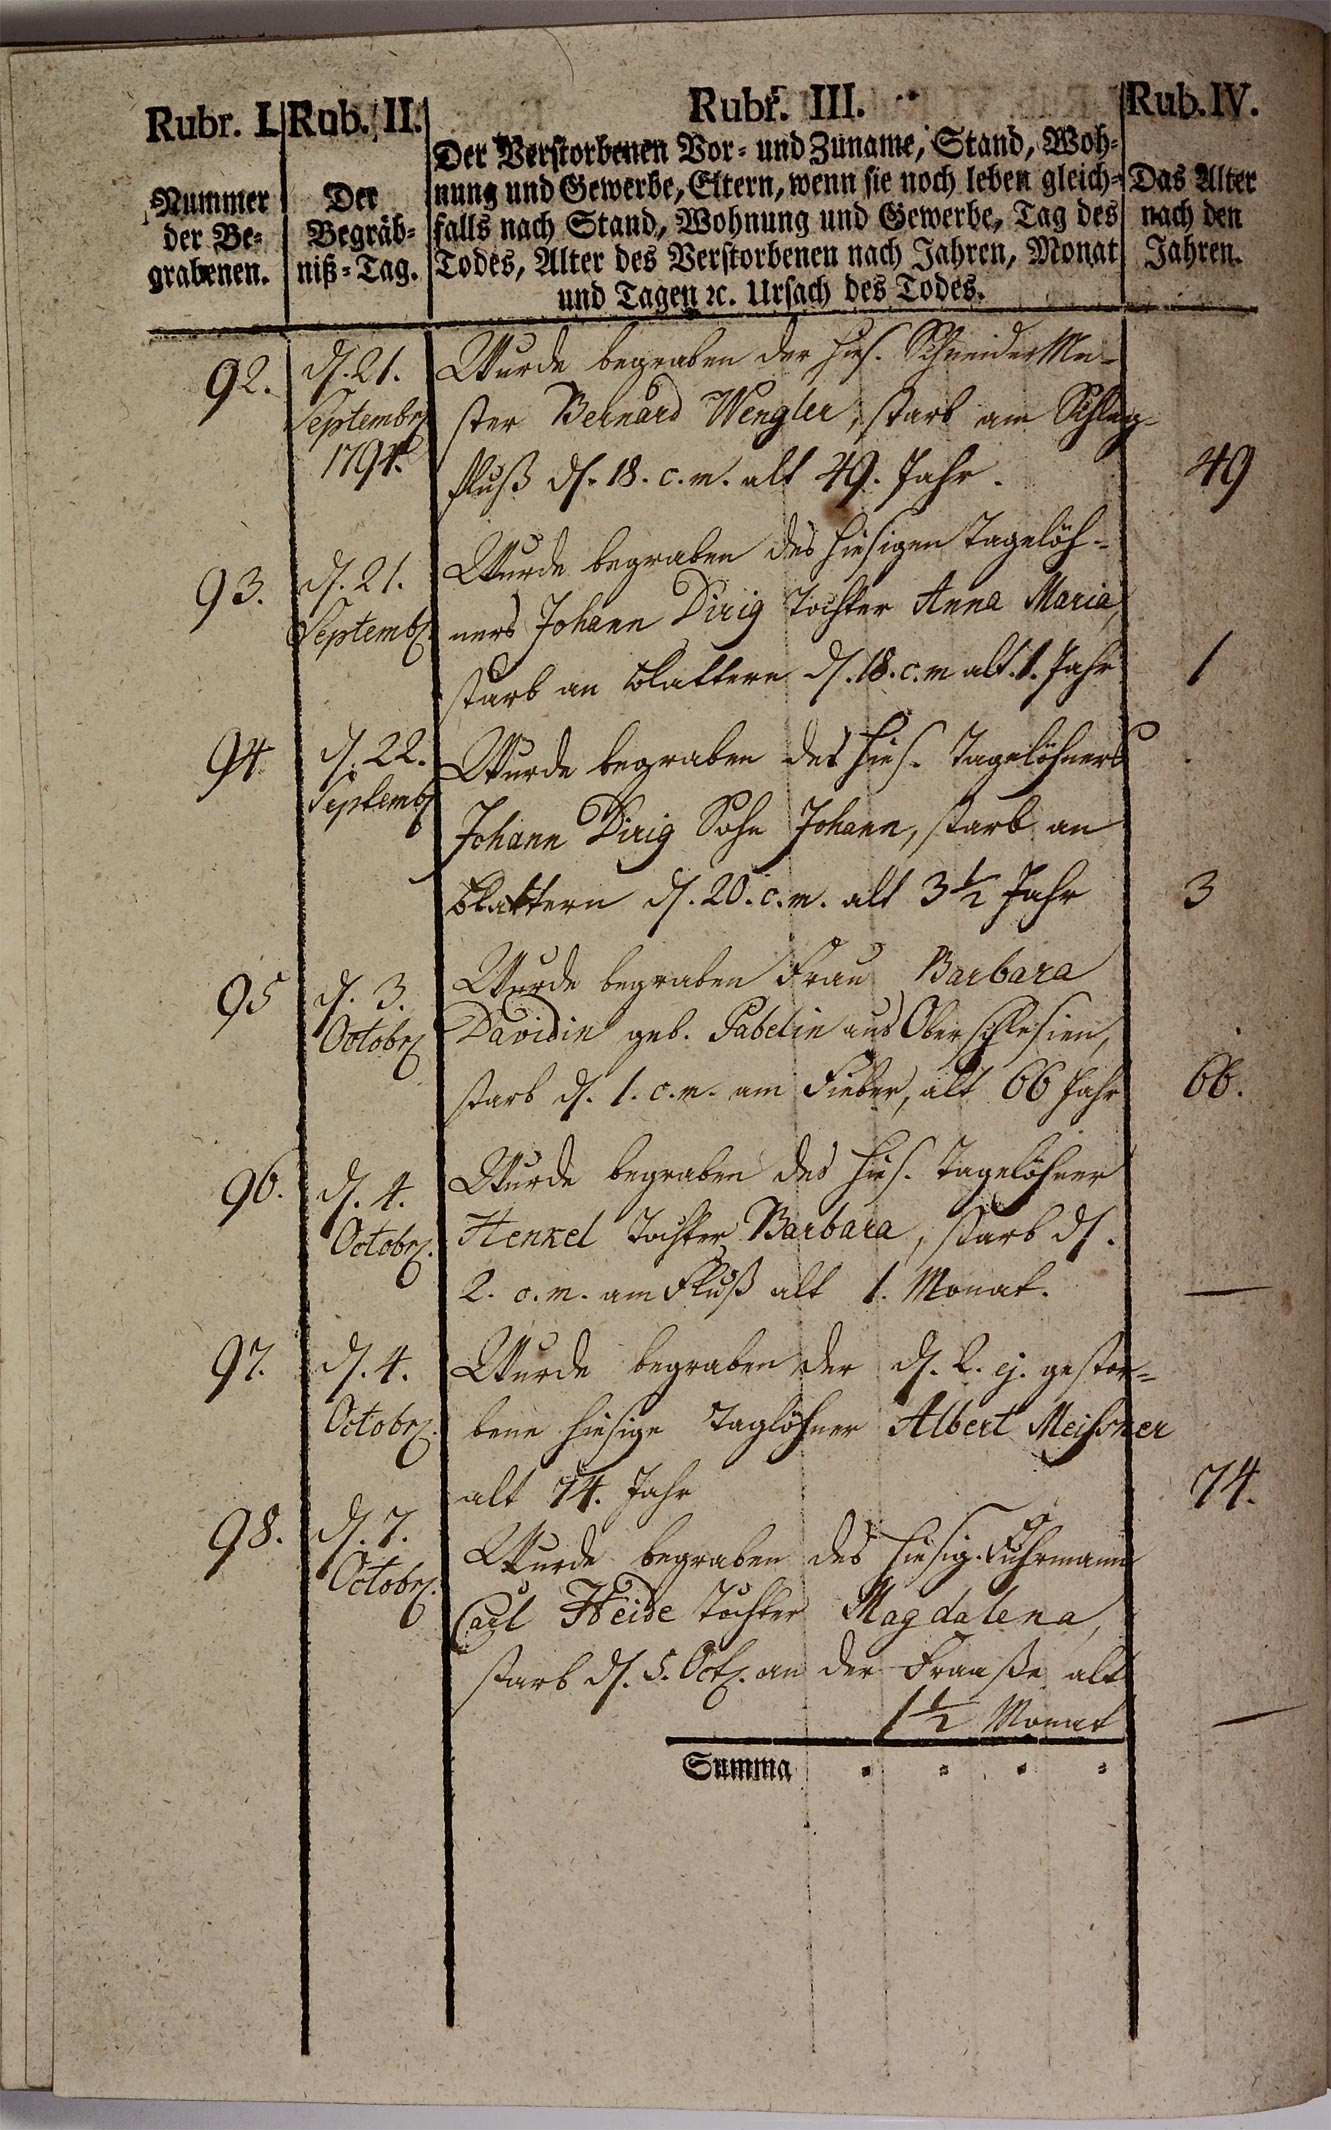 Rubr. I.
Rub. II.
Rubr. III.
Rub. IV.
Nummer
der Be-
grabenen.
Der
Begräb-
niß-Tag.
Der Verstorbenen Vor- und Zuname, Stand, Woh-
nung und Gewerbe, Eltern, wenn sie noch leben gleich-
falls nach Stand, Wohnung und Gewerbe, Tag des
Todes, Alter des Verstorbenen nach Jahren, Monat
und Tagen ꝛc. Ursach des Todes.
Das Alter
nach den
Jahren.
92.
d. 21.
Septembr
1794.
Wurde begraben der hies. Schneider Mei-
ster Bernard Wengler, starb am Schlag-
fluß d. 18. c. m. alt 49. Jahr.
49
93.
d. 21.
Septemb.
Wurde begraben des hiesigen Tagelöh-
ners Johann Dirig Tochter Anna Maria,
starb an Blattern d. 18. c. m alt. 1. Jahr
1
94
d. 22.
Septemb
Wurde begraben des hies. Tagelöhners
Johann Dirig Sohn Johann, starb an
Blattern d. 20. c. m. alt 3½ Jahr
3
95
d. 3.
Octobr
Wurde begraben Frau Barbara
Davidin geb. Pabelin aus Oberschlesien,
starb d. 1. c. m. am Fieber, alt 66 Jahr
66.
96.
d. 4.
Octobr.
Wurde begraben des hies. Tagelöhner
Henkel Tochter Barbara, starb d.
2. c. m. am Fluß alt 1. Monat.
—
97.
d. 4.
Octobr.
Wurde begraben der d. 2. ej. gestor-
bene hiesige Taglöhner Albert Meißner
alt 74. Jahr
74.
98.
d. 7.
Octobr.
Wurde begraben des hiesig. Fuhrmann
Carl Heide Tochter Magdalena,
starb d. 5. Oct. an der Fraaße alt
1½ Monat
—
Summa